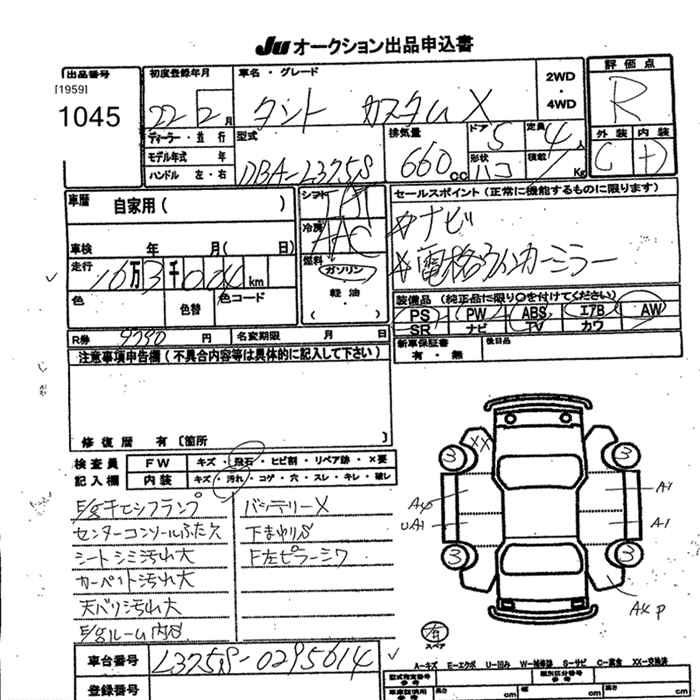 JU オークション出品申込書
出品番号
[1959]
1045
初度登録年月
22 2月
車名・グレード
タント カスタムX
2WD
・
4WD
評価点
R
ディーラー・並行
モデル年式 年
ハンドル 左・右
型式
DBA-L375S
排気量
660cc
ドア 5
定員 4人
形状 ハコ
積載 Kg
外装 内装
C D
車歴
自家用( )
車検 年 月( 日)
走行
10万3千0
km
色
色替
色コード
シフト
冷房
AAC
燃料
ガソリン
軽油
( )
セールスポイント(正常に機能するものに限ります)
#ナビ
#電格ウインカーミラー
装備品(純正品に限り○を付けてください)
PS PW ABS エアB AW
SR ナビ TV カワ
R券 9290円
名変期限 月 日
新車保証書
有・無
後日品
注意事項申告欄(不具合内容等は具体的に記入して下さい)
修復歴 有〔箇所 〕
検査員
記入欄
FW キズ・飛石・ヒビ割・リペア跡・×要
内装 キズ・汚れ・コゲ・穴・スレ・キレ・破レ
E/gチェックランプ
バッテリーX
センターコンソールふた欠
下まわりS
シートシミ汚れ大
F左ピラーシワ
カーペット汚れ大
天バリ汚れ大
E/gルーム内S
XX
3 3
A4 A1
UA1 A1
3 3
AKP
有
スペア
車台番号
L375S-0295614
登録番号
A-キズ E-エクボ U-凹み W-補修跡 S-サビ C-腐食 XX-交換済
型式指定番号
参考
類別区分番号
参考
長さ cm
幅 cm
高さ cm